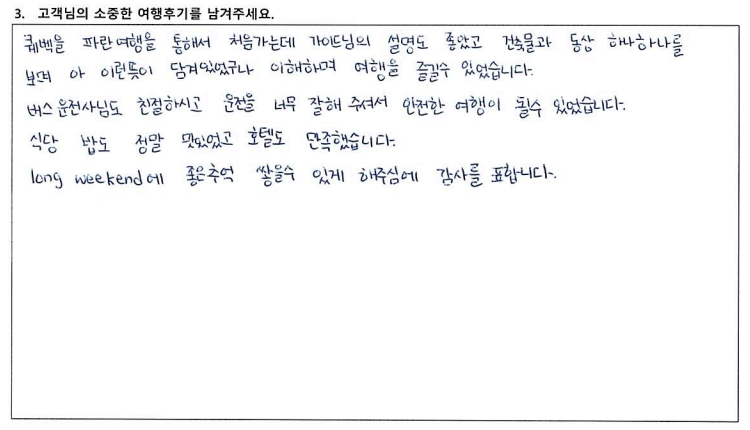 3. 고객님의 소중한 여행후기를 남겨주세요.
퀘벡을 파란여행을 통해서 처음가는데 가이드님의 설명도 좋았고 건축물과 동상 하나하나를
보며 아 이런뜻이 담겨있었구나 이해하며 여행을 즐길수 있었습니다.
버스운전사님도 친절하시고 운전을 너무 잘해 주셔서 안전한 여행이 될수 있었습니다.
식당 밥도 정말 맛있었고 호텔도 만족했습니다.
long weekend에 좋은추억 쌓을수 있게 해주심에 감사를 표합니다.